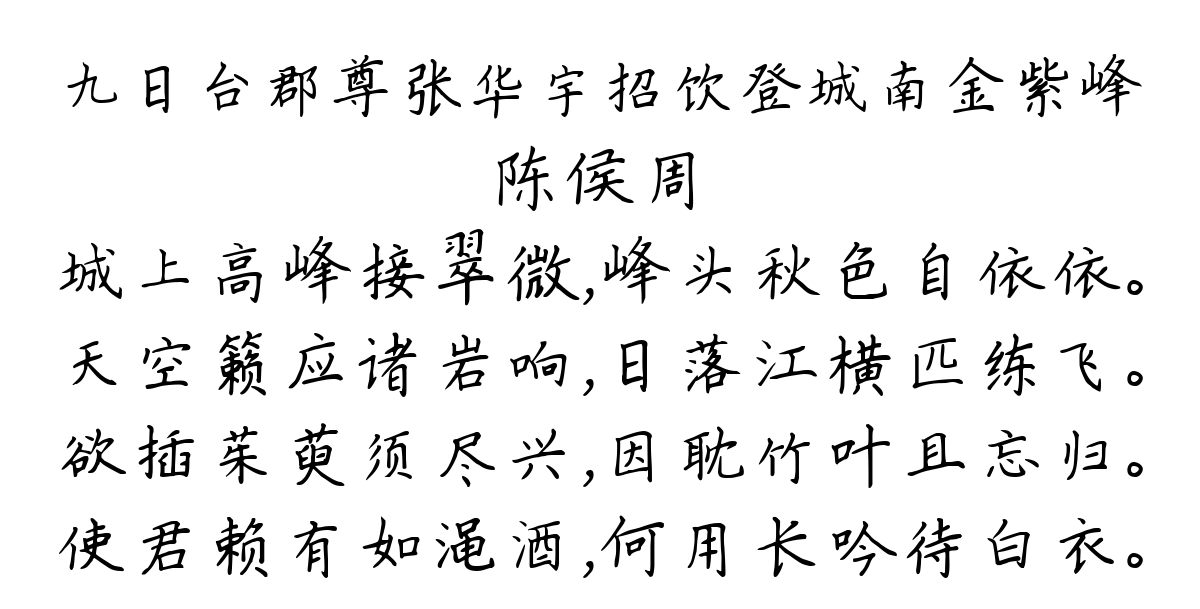 九日台郡尊张华宇招饮登城南金紫峰
陈侯周
城上高峰接翠微,峰头秋色自依依。
天空籁应诸岩响,日落江横匹练飞。
欲插茱萸须尽兴,因耽竹叶且忘归。
使君赖有如渑酒,何用长吟待白衣。